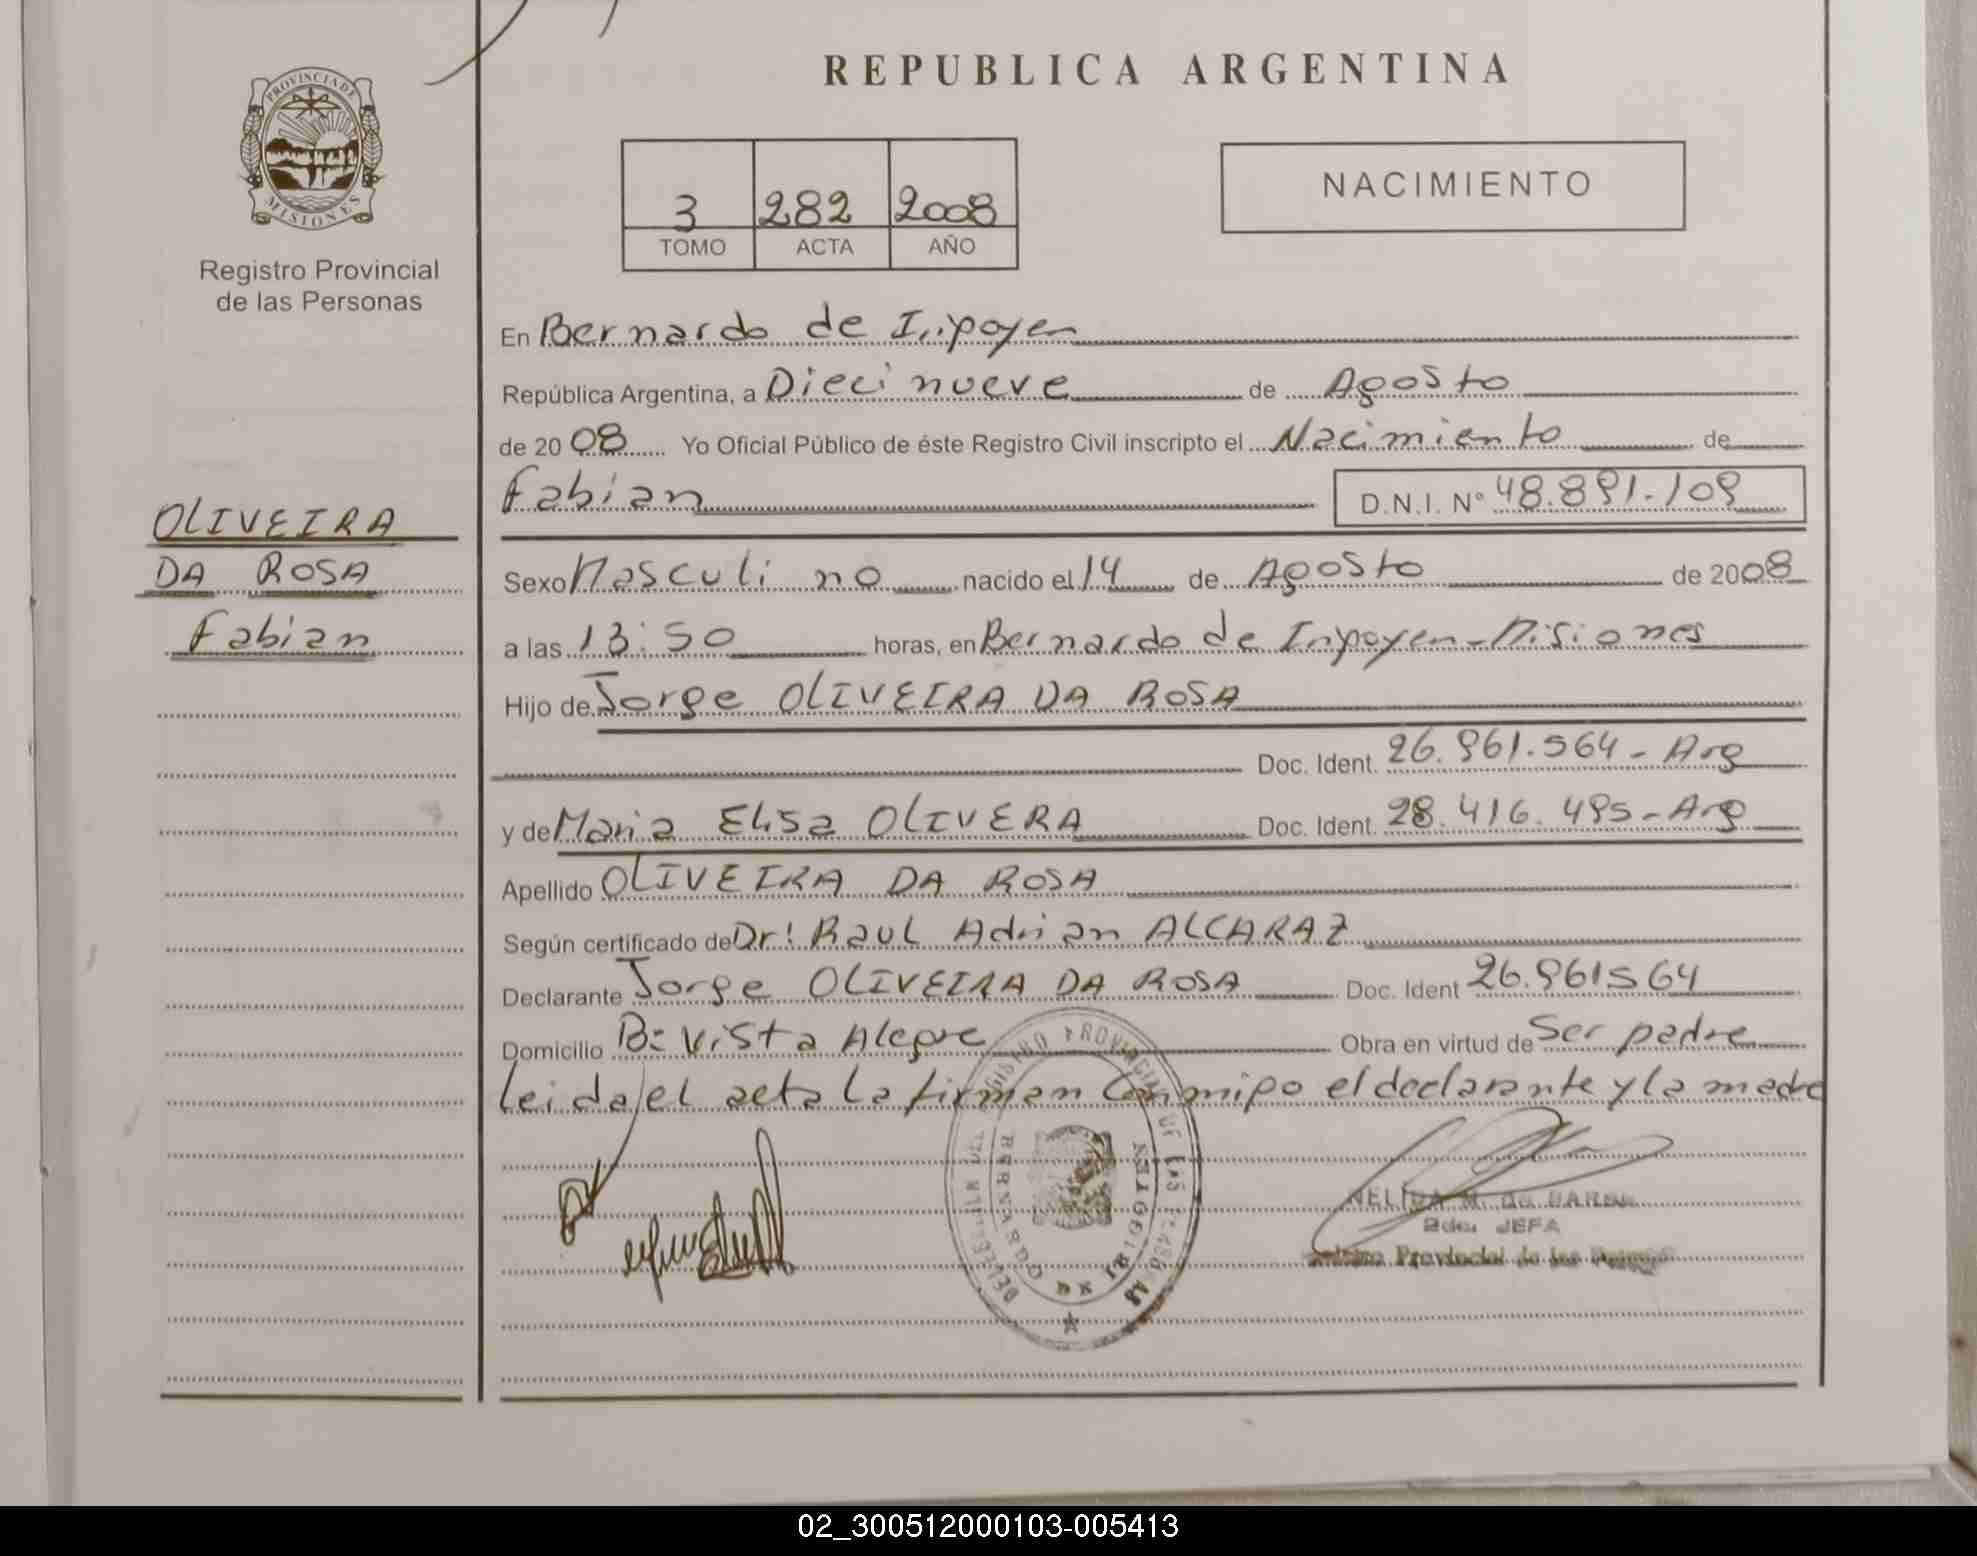 REPUBLICA ARGENTINA
PROVINCIA DE MISIONES
Registro Provincial
de las Personas
3 282 2008
TOMO ACTA AÑO
NACIMIENTO
En Bernardo de Irigoyen
República Argentina, a Diecinueve de Agosto
de 20 08 Yo Oficial Público de éste Registro Civil inscripto el Nacimiento de
Fabian D.N.I. Nº 48.891.109
OLIVEIRA
DA ROSA
Fabian
Sexo Masculino nacido el 14 de Agosto de 2008
a las 13:50 horas, en Bernardo de Irigoyen - Misiones
Hijo de Jorge OLIVEIRA DA ROSA
Doc. Ident. 26.961.564 - Arg
y de Maria Elisa OLIVERA Doc. Ident. 28.416.495 - Arg
Apellido OLIVEIRA DA ROSA
Según certificado de Dr: Raul Adrian ALCARAZ
Declarante Jorge OLIVEIRA DA ROSA Doc. Ident 26.961564
Domicilio B: Vista Alegre Obra en virtud de Ser padre
leida el acta la firman conmigo el declarante y la madre
NELIDA M. de
2da. JEFA
Provincial de las
BERNARDO DE IRIGOYEN
02_300512000103-005413